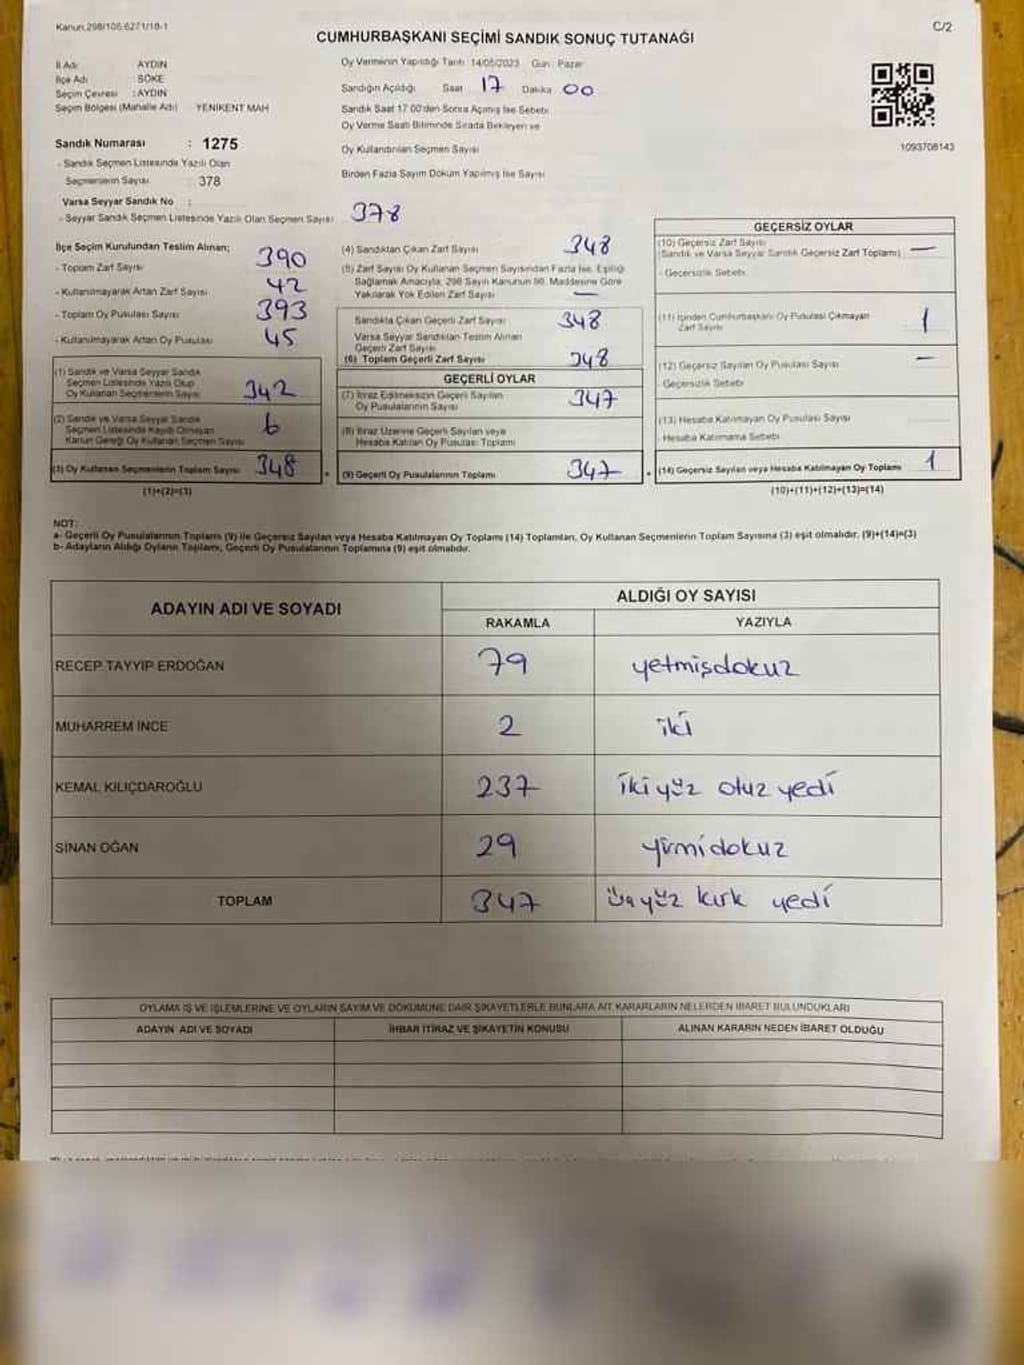 Kanun.298/105.6271/18-1
C/2
CUMHURBAŞKANI SEÇİMİ SANDIK SONUÇ TUTANAĞI
İl Adı AYDIN
İlçe Adı SÖKE
Seçim Çevresi : AYDIN
Seçim Bölgesi (Mahalle Adı) YENIKENT MAH
Sandık Numarası : 1275
- Sandık Seçmen Listesinde Yazılı Olan
Seçmenlerin Sayısı 378
Varsa Seyyar Sandık No :
- Seyyar Sandık Seçmen Listesinde Yazılı Olan Seçmen Sayısı 378
Oy Vermenin Yapıldığı Tarih: 14/05/2023 Gün: Pazar
Sandığın Açıldığı Saat 17 Dakika 00
Sandık Saat 17.00'den Sonra Açılmış İse Sebebi
Oy Verme Saati Bitiminde Sırada Bekleyen ve
Oy Kullandırılan Seçmen Sayısı
Birden Fazla Sayım Döküm Yapılmış İse Sayısı
1093708143
İlçe Seçim Kurulundan Teslim Alınan;
- Toplam Zarf Sayısı 390
- Kullanılmayarak Artan Zarf Sayısı 42
- Toplam Oy Pusulası Sayısı 393
- Kullanılmayarak Artan Oy Pusulası 45
(1) Sandık ve Varsa Seyyar Sandık
Seçmen Listesinde Yazılı Olup
Oy Kullanan Seçmenlerin Sayısı 342
(2) Sandık ve Varsa Seyyar Sandık
Seçmen Listesinde Kayıtlı Olmayan
Kanun Gereği Oy Kullanan Seçmen Sayısı 6
(3) Oy Kullanan Seçmenlerin Toplam Sayısı 348
(1)+(2)=(3)
(4) Sandıktan Çıkan Zarf Sayısı 348
(5) Zarf Sayısı Oy Kullanan Seçmen Sayısından Fazla İse, Eşitliği
Sağlamak Amacıyla, 298 Sayılı Kanunun 98. Maddesine Göre
Yakılarak Yok Edilen Zarf Sayısı —
Sandıkta Çıkan Geçerli Zarf Sayısı 348
Varsa Seyyar Sandıktan Teslim Alınan
Geçerli Zarf Sayısı
(6) Toplam Geçerli Zarf Sayısı 348
GEÇERLİ OYLAR
(7) İtiraz Edilmeksizin Geçerli Sayılan
Oy Pusulalarının Sayısı 347
(8) İtiraz Üzerine Geçerli Sayılan veya
Hesaba Katılan Oy Pusulası Toplamı
(9) Geçerli Oy Pusulalarının Toplamı 347
GEÇERSİZ OYLAR
(10) Geçersiz Zarf Sayısı
(Sandık ve Varsa Seyyar Sandık Geçersiz Zarf Toplamı) —
- Geçersizlik Sebebi
(11) İçinden Cumhurbaşkanı Oy Pusulası Çıkmayan
Zarf Sayısı 1
(12) Geçersiz Sayılan Oy Pusulası Sayısı —
- Geçersizlik Sebebi
(13) Hesaba Katılmayan Oy Pusulası Sayısı
- Hesaba Katılmama Sebebi
(14) Geçersiz Sayılan veya Hesaba Katılmayan Oy Toplamı 1
(10)+(11)+(12)+(13)=(14)
NOT:
a- Geçerli Oy Pusulalarının Toplamı (9) ile Geçersiz Sayılan veya Hesaba Katılmayan Oy Toplamı (14) Toplamları, Oy Kullanan Seçmenlerin Toplam Sayısına (3) eşit olmalıdır. (9)+(14)=(3)
b- Adayların Aldığı Oyların Toplamı, Geçerli Oy Pusulalarının Toplamına (9) eşit olmalıdır.
ADAYIN ADI VE SOYADI
ALDIĞI OY SAYISI
RAKAMLA YAZIYLA
RECEP TAYYIP ERDOĞAN 79 yetmişdokuz
MUHARREM İNCE 2 iki
KEMAL KILIÇDAROĞLU 237 ikiyüz otuz yedi
SİNAN OĞAN 29 yirmidokuz
TOPLAM 347 üçyüz kırk yedi
OYLAMA İŞ VE İŞLEMLERİNE VE OYLARIN SAYIM VE DÖKÜMÜNE DAİR ŞİKAYETLERLE BUNLARA AİT KARARLARIN NELERDEN İBARET BULUNDUKLARI
ADAYIN ADI VE SOYADI İHBAR İTİRAZ VE ŞİKAYETİN KONUSU ALINAN KARARIN NEDEN İBARET OLDUĞU